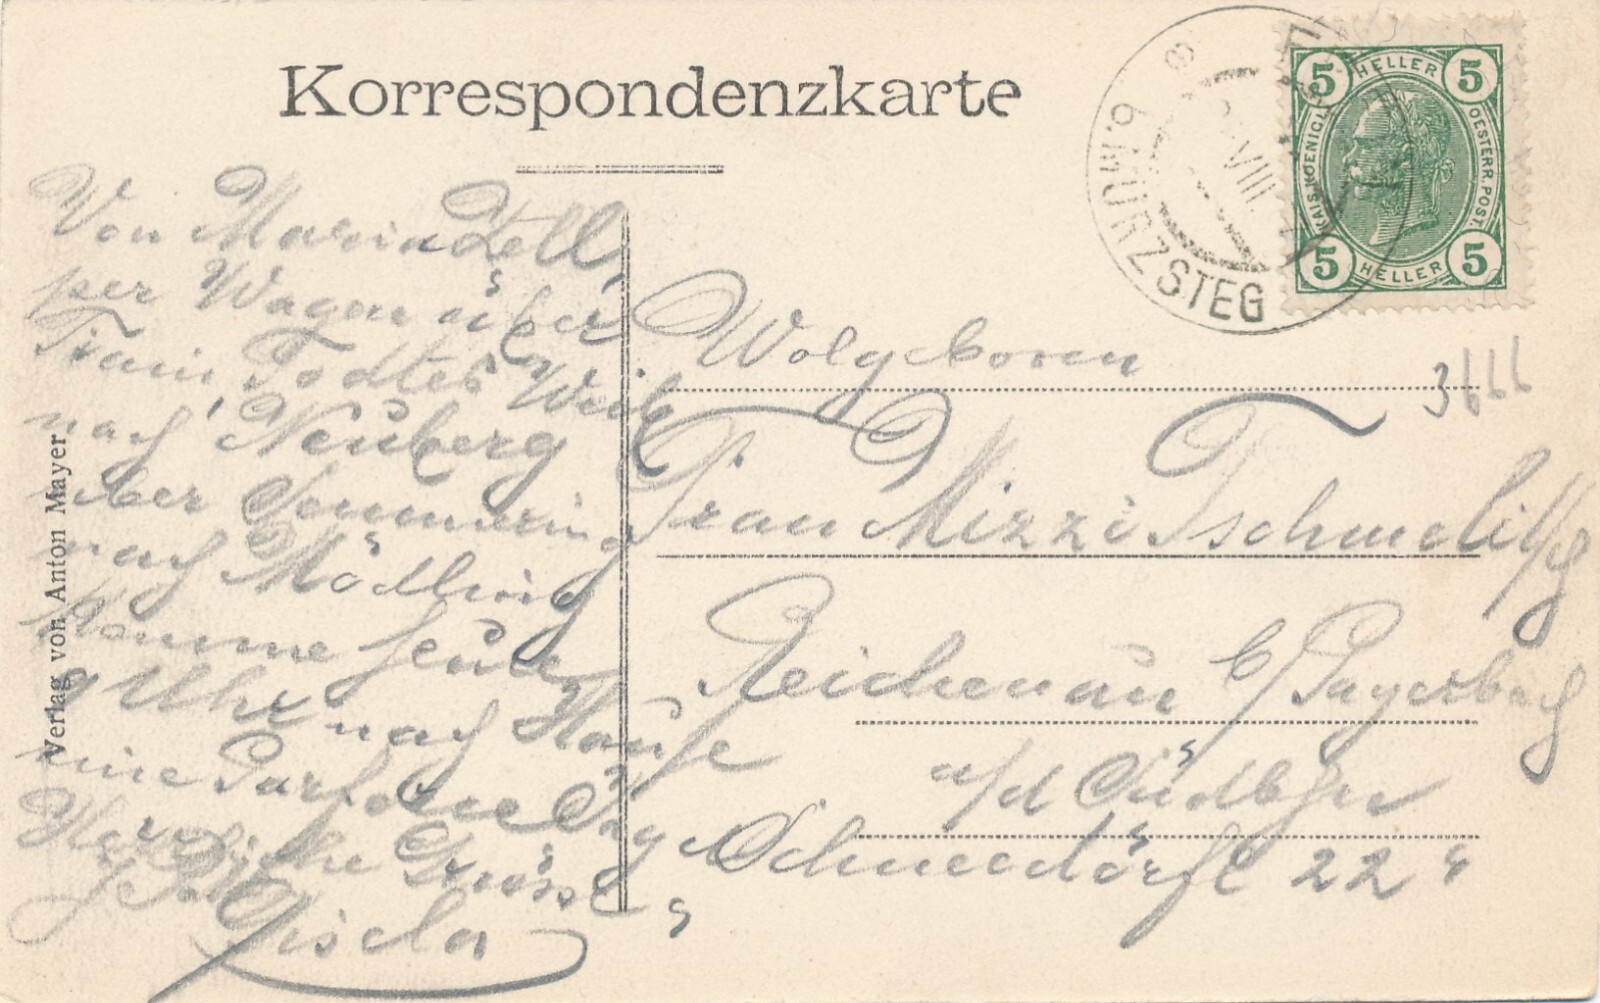 Korrespondenzkarte
b. MÜRZSTEG
VIII.
5 HELLER 5
KAIS. KOENIGL. OESTERR. POST.
5 HELLER 5
Von Mariazell,
per Wagen über
Frein, Todtes Weib
nach Neuberg
über Semmering
nach Mödling
komme heute
9 Uhr nach Hause
eine Parforce
Herzliche Grüsse
Gisela
Verlag von Anton Mayer
Wolgeboren
Frau Mizzi
Reichenau b/ Payerbach
a/d Südbahn
22